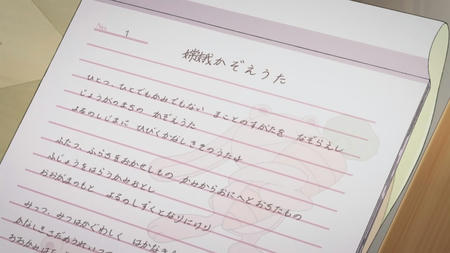 No. 1
嫦娥かぞえうた
ひとつ、ひとでもかみでもない まことのすがたを なぞらえし
じょうがのまちの かぞえうた
よるのしじまに ひびくかなしきそのうたよ
ふたつ、ふらちをおかせしもの かせからおにへとおちたもの
ふじょうをはらうかせおとし
おおがまのもと よるのしずくとなりにけり
みっつ、みつはかぐわしく はかなき